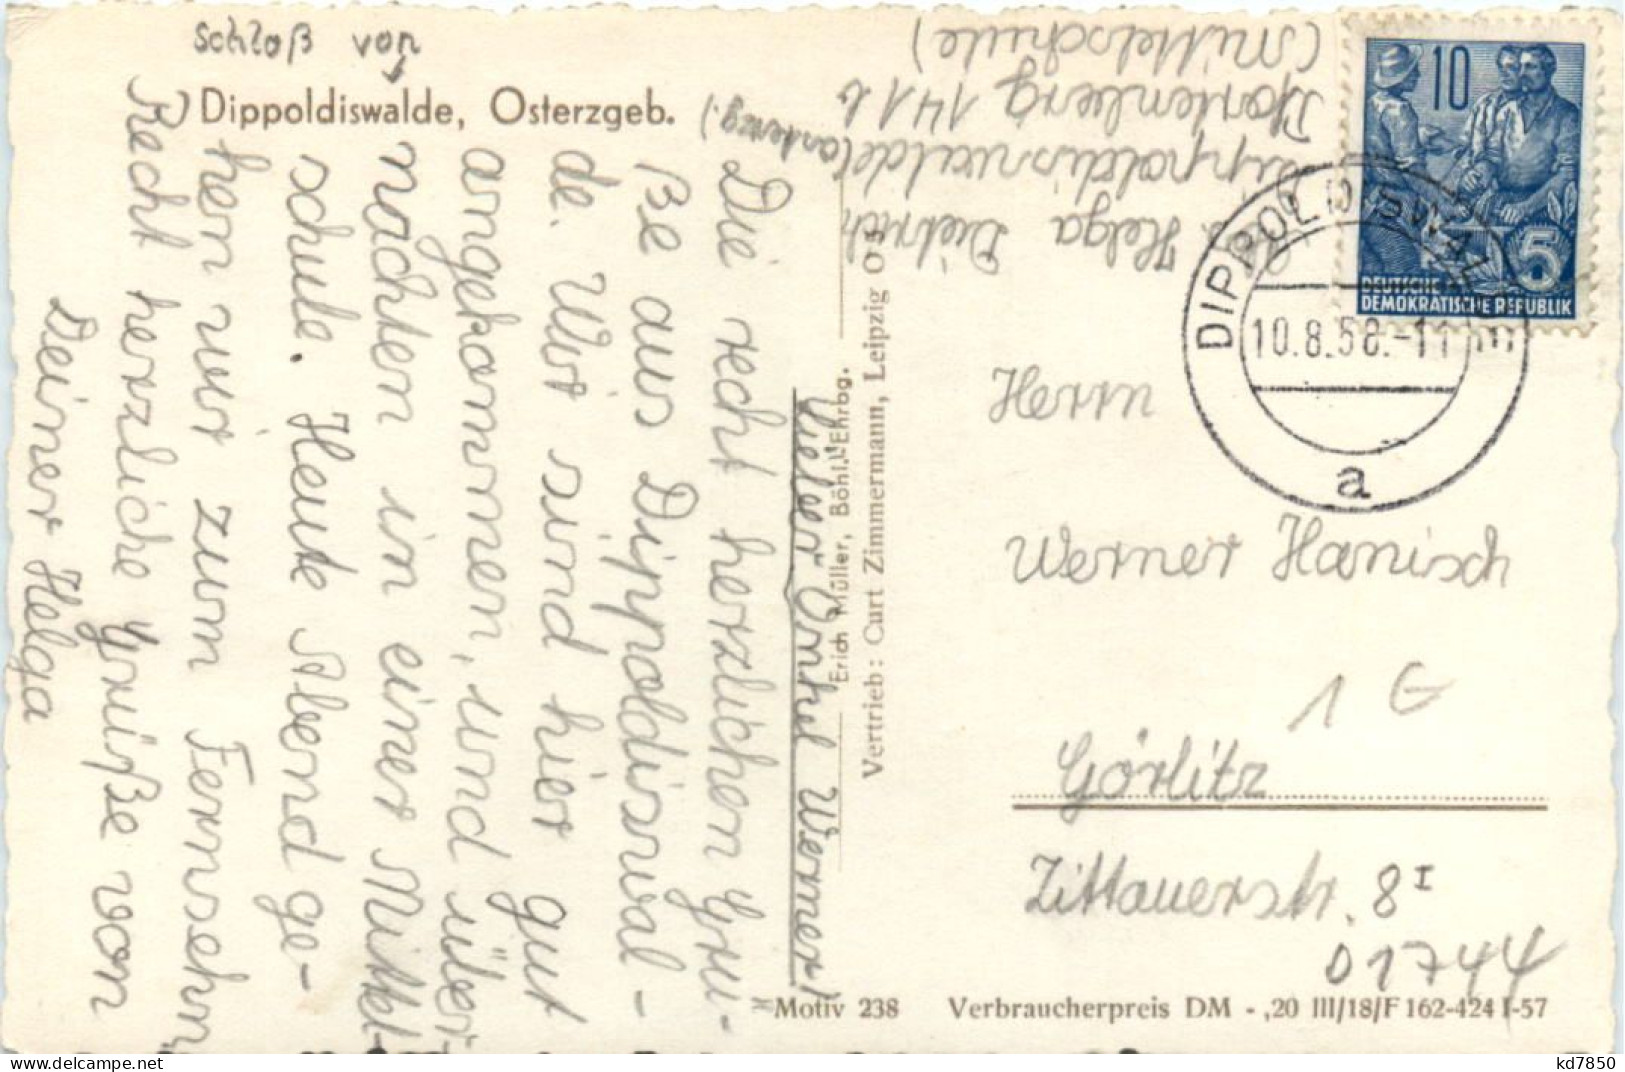 Schloß von
Dippoldiswalde, Osterzgeb.
Lieber Onkel Werner!
Die recht herzlichen Grü-
ße aus Dippoldiswal-
de. Wir sind hier gut
angekommen, und über-
nachten in einer Mittel-
schule. Heute Abend ge-
hen wir zum Fernsehn
Recht herzliche Grüße von
Deiner Helga
Erich Müller, Böhl.-Ehrbg.
Vertrieb: Curt Zimmermann, Leipzig O 5
Helga Dietrich
Dippoldiswalde (Osterzg.)
141 b
(Mittelschule)
10
5
DEUTSCHE
DEMOKRATISCHE REPUBLIK
DIPPOLDISWALDE
10.8.58.-11
a
Herrn
Werner Hanisch
1 G
Görlitz
Zittauerstr. 8 I
01744
Motiv 238 Verbraucherpreis DM -,20 III/18/F 162-424 I-57
www.delcampe.net
kd7850